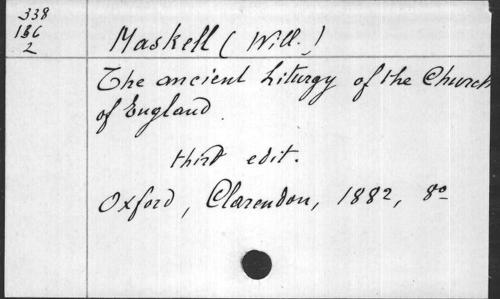 338
156
2
Maskell (Will.)
The ancient Liturgy of the Church
of England.
third edit.
Oxford, Clarendon, 1882, 8o